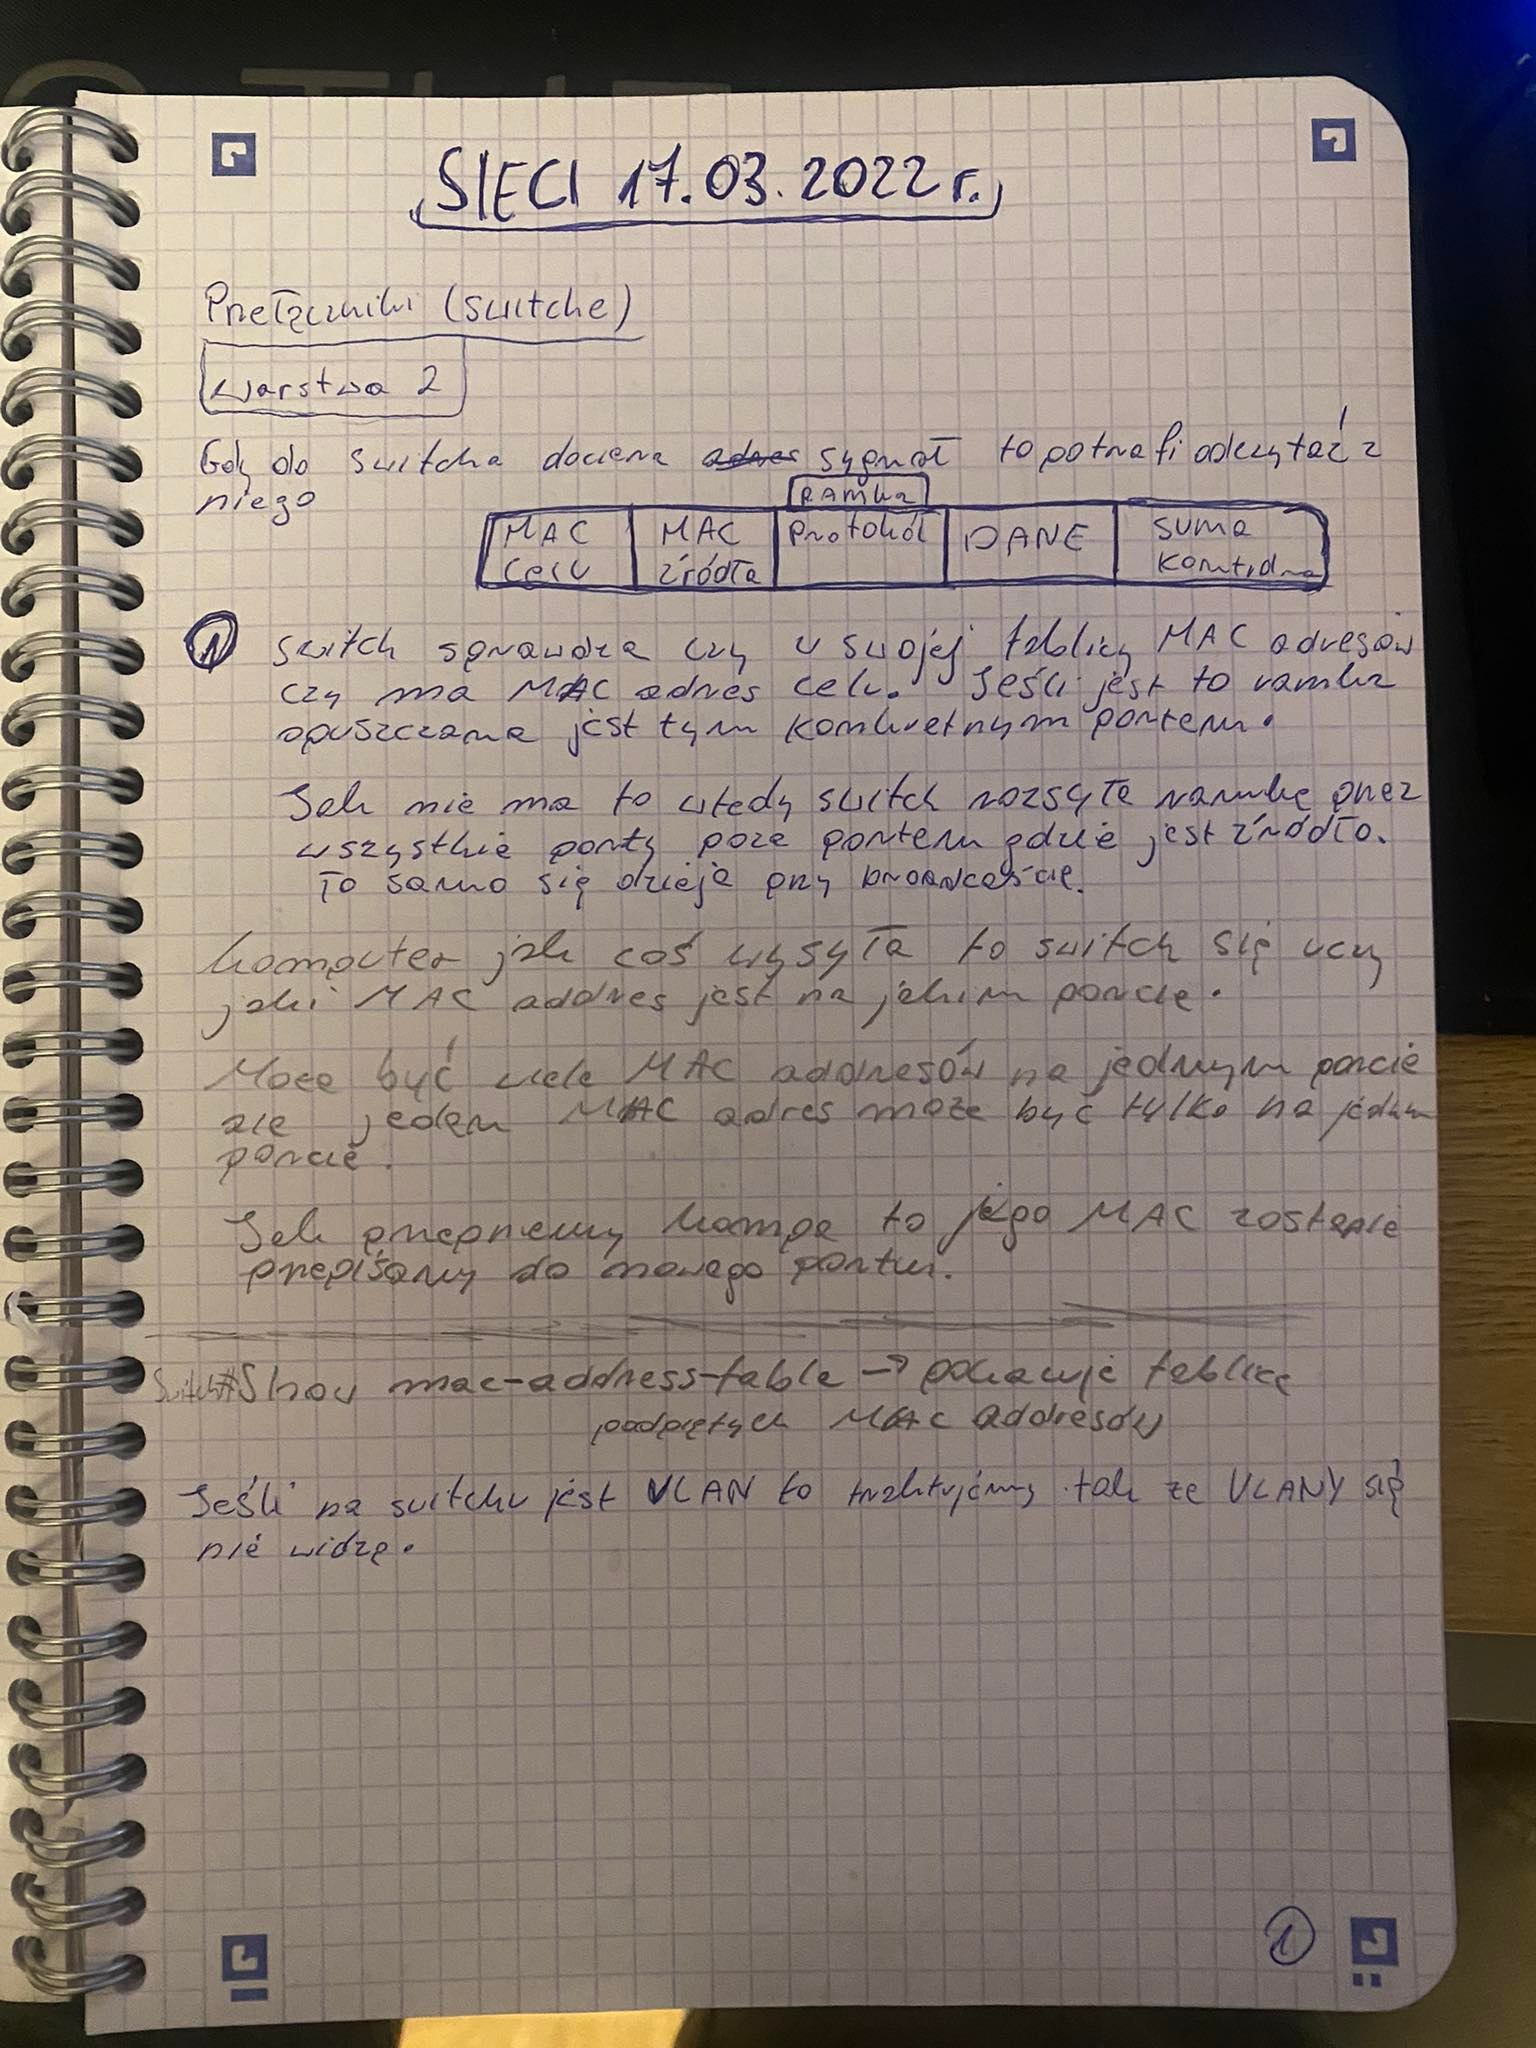 SIECI 17.03.2022 r.
Przełączniki (switche)
warstwa 2
Gdy do switcha dociera adres sygnał to potrafi odczytać z
niego
RAMKA
MAC celu | MAC źródła | Protokół | DANE | suma kontrolna
1 switch sprawdza czy w swojej tablicy MAC adresów
czy ma MAC adres celu. Jeśli jest to ramka
opuszczana jest tym konkretnym portem.
Jak nie ma to wtedy switch rozsyła ramkę przez
wszystkie porty poza portem gdzie jest źródło.
To samo się dzieje przy broadcaście.
komputer jak coś wysyła to switch się uczy
jaki MAC addres jest na jakim porcie.
Może być wiele MAC addresów na jednym porcie
ale jeden MAC adres może być tylko na jednym
porcie.
Jak przepniemy kompa to jego MAC zostanie
przepisany do nowego portu.
Switch#Show mac-address-table → pokazuje tablicę
podpiętych MAC addresów
Jeśli na switchu jest VLAN to traktujemy tak że VLANY się
nie widzą.
1